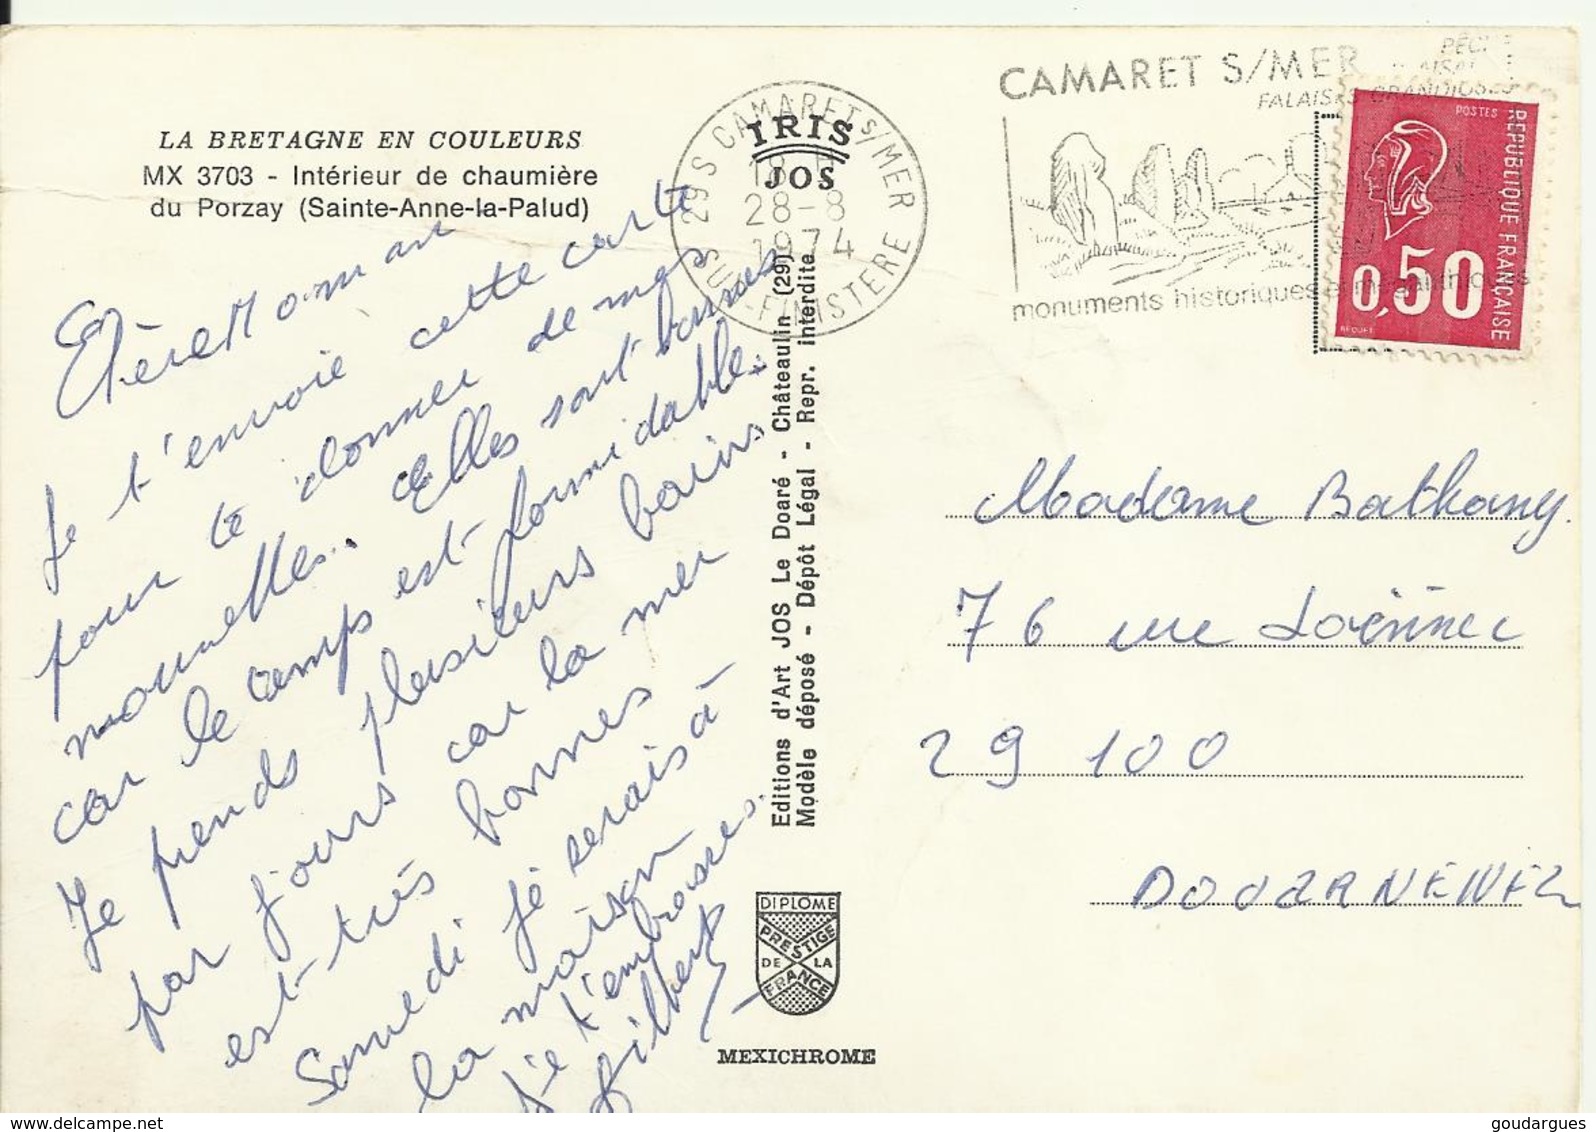 LA BRETAGNE EN COULEURS
MX 3703 - Intérieur de chaumière
du Porzay (Sainte-Anne-la-Palud)
Chère Maman
Je t'envoie cette carte
pour te donner de mes
nouvelles. Elles sont bonnes
car le camps est formidable.
Je prends plusieurs bains
par jours car la mer
est très bonnes
Samedi je serais à
la maison
Je t'embrasses.
Gilbert
IRIS
JOS
29S CAMARET S/MER
18 H
28-8
1974
SUD-FINISTERE
Editions d'Art JOS Le Doaré - Châteaulin (29)
Modèle déposé - Dépôt Légal - Repr. interdite
DIPLOME
PRESTIGE
DE LA
FRANCE
MEXICHROME
CAMARET S/MER
FALAISES GRANDIOSES
monuments historiques et mégalithiques
POSTES
REPUBLIQUE FRANÇAISE
0,50
BEQUET
Madame Bathany
76 rue Laënnec
29 100
DOUARNENEZ
goudargues sur www.delcampe.net